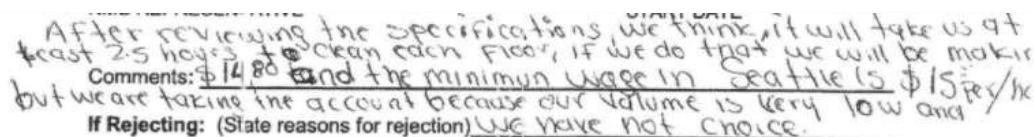 START DATE
After reviewing the specifications, we think, it will take us at
least 2.5 hours to clean each Floor, if we do that we will be makin
Comments: $14 80 and the minimun wage in Seattle is $15 per/ho
but we are taking the account because our volume is very low and
If Rejecting: (State reasons for rejection) we have not choice.